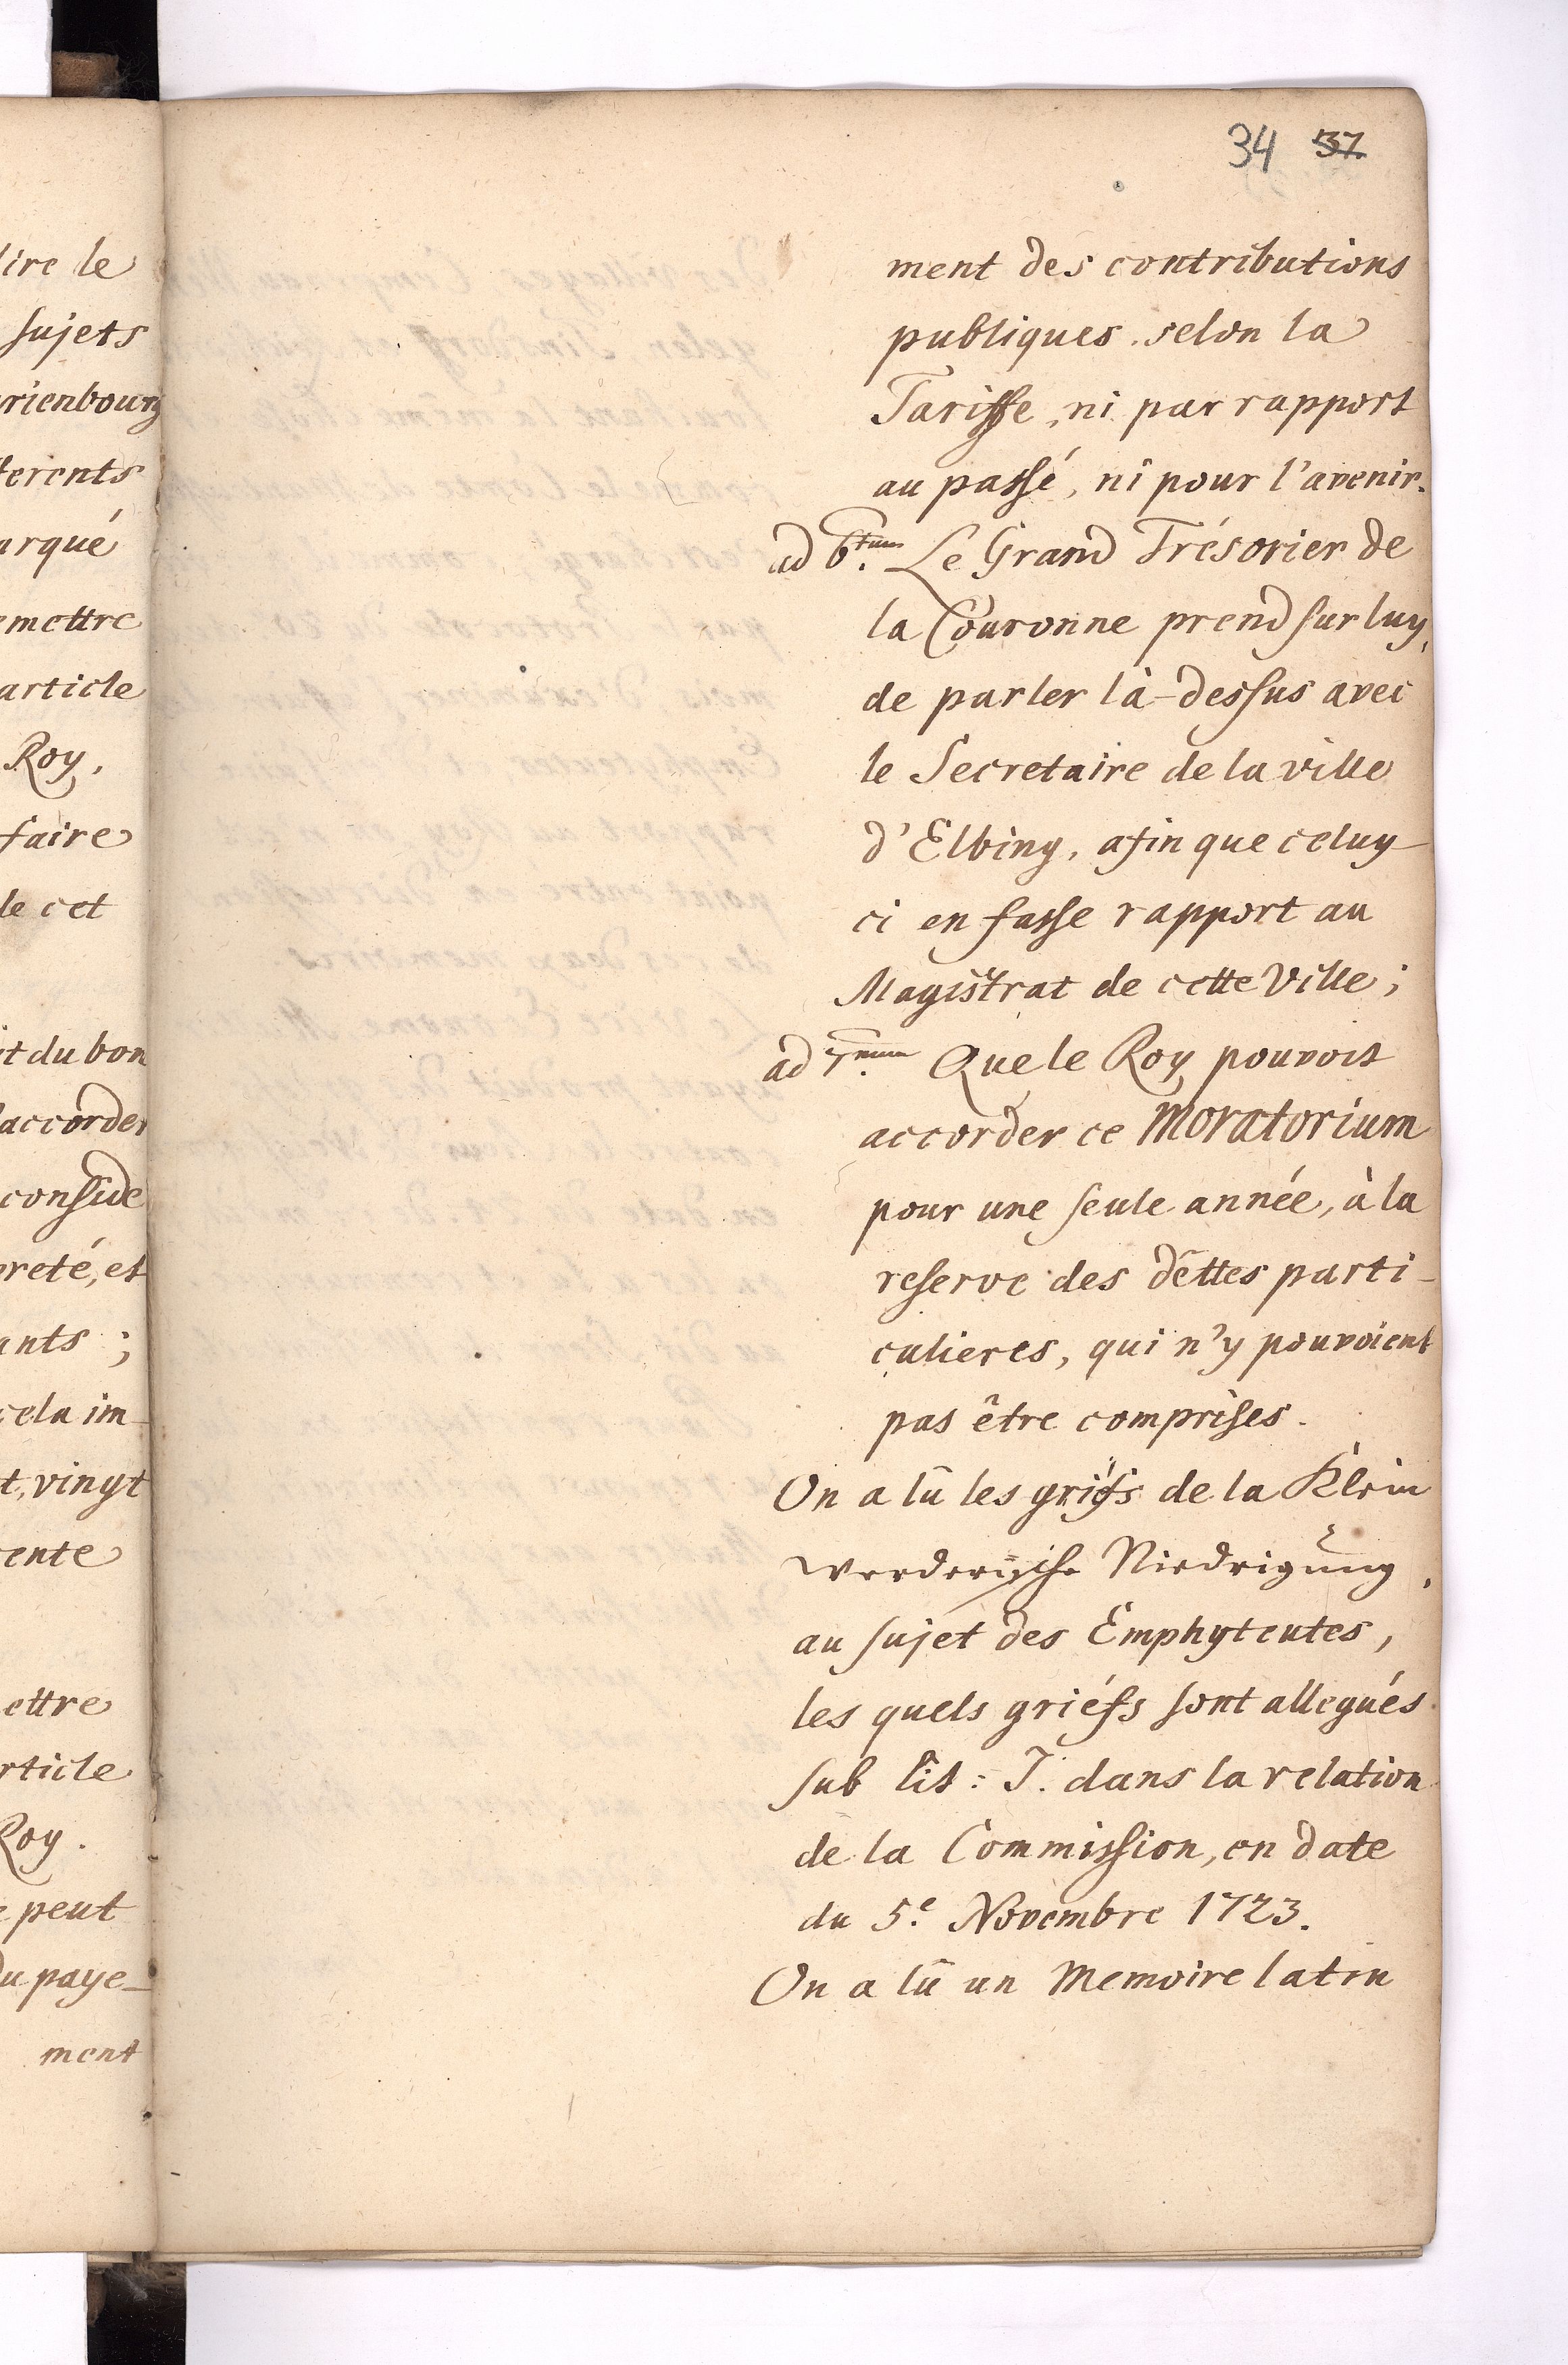 ire le
sujets
rienbourg
ferents
arqué
emettre
article
Roy,
faire
le cet
it du bon
accorder
conside
preté, et
ants ;
cela im-
t, vingt
ente
ettre
rticle
Roy.
e peut
du paye-
ment
34 37
ment des contributions
publiques selon la
Tariffe, ni par rapport
au passé, ni pour l'avenir.
ad 6.tum Le Grand Trésorier de
la Couronne prend sur luy,
de parler là-dessus avec
le Secretaire de la ville
d'Elbing, afin que celuy-
ci en fasse rapport au
Magistrat de cette Ville ;
ad 7.mum Que le Roy pouvoit
accorder ce Moratorium
pour une seule année, à la
reserve des dêttes parti-
culieres, qui n'y pouvoient
pas être comprises.
On a lû les griéfs de la Klein
Werderische Niedrigung,
au sujet des Emphyteutes,
les quels griéfs sont allegués
sub lit: J. dans la relation
de la Commission, en date
du 5.e Novembre 1723.
On a lû un Memoire latin